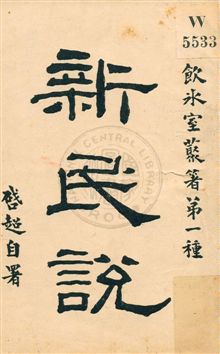 W
5533
飲氷室藂箸第一種
新民說
啓超自署
CENTRAL LIBRARY